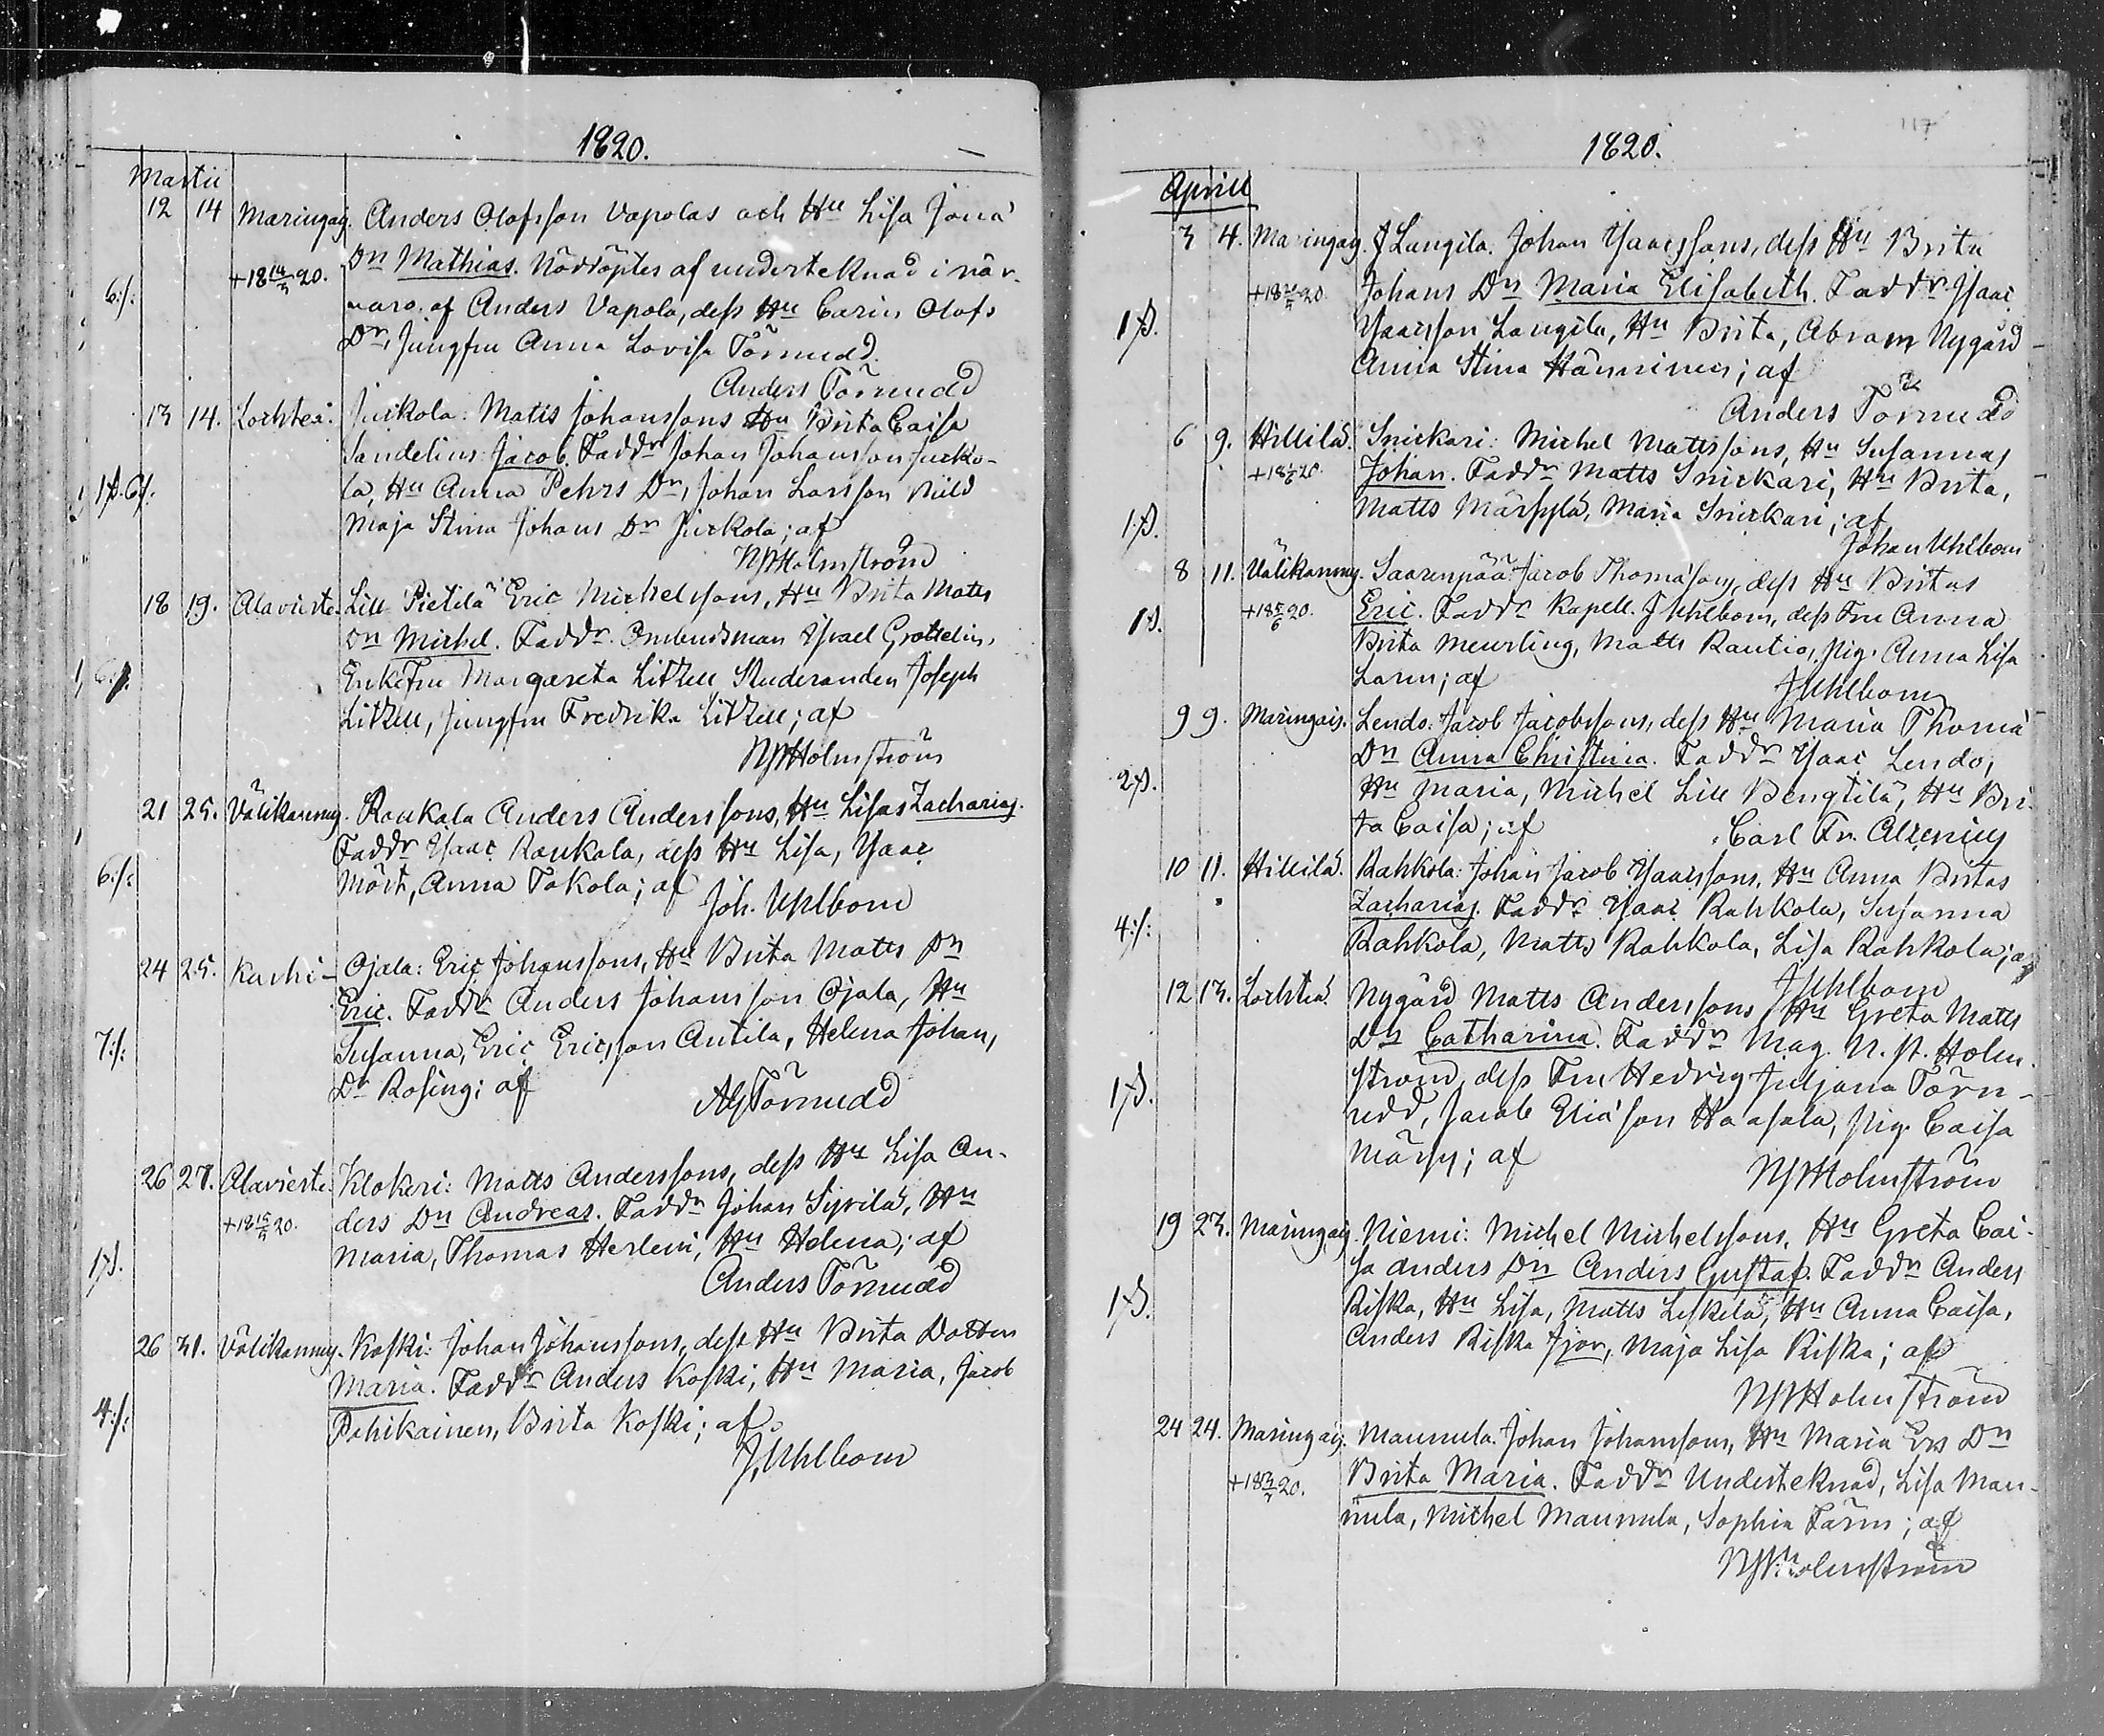 1820.
Martii
12 14 Maringais. Anders Olofsson Vapolas och Hu Lisa Jona
+18 14/3 20. Dn Mathias. Nöddöptes af underteknad i när-
6:/: varo af Anders Vapola, dess Hu Carin Olofs
Dr, Jungfru Anna Lovisa Törnudd.
Anders Törnudd
13 14. Lochteå. Juckola: Matts Johanssons Hu Brita Caisa
Sandelius Jacob. Faddr Johan Johansson Jucko-
la, Hu Anna Pehrs Dr, Johan Larsson
Maja Stina Johans Dr Juckola; af
NHolmström
18 19. Alavieste. Lill Pietilä Eric Michelssons, Hu Brita Matts
Dn Michel. Faddr. Ombudsman Israel
Enkefru Margareta Litzell Studeranden Joseph
Litzell, Jungfru Fredrika Litzell; af
NHolmström
21 25. Välikannug. Raukala Anders Anderssons, Hu Lisas Zacharias.
Faddr Isaac Raukala, dess Hu Lisa, Isaac
6:/: Mört, Anna Tokola; af
Joh. Uhlbom
24 25. Kachi- Ojala: Eric Johanssons, Hu Brita Matts Dn
Eric. Faddr Anders Johansson Ojala, Hu
7:/: Susanna, Eric Ericsson Antila, Helena Johan,
Dr Rosing; af
AGTörnudd
26 27. Alavieste. Klokeri: Matts Anderssons, dess Hu Lisa An-
+18 15/5 20. ders Dn Andreas. Faddr Johan Sipilä, Hu
Maria, Thomas Herleui, Hu Helena; af
Anders Törnudd
26 31. Välikannug. Koski: Johan Johanssons, dess Hu Brita Dotter
Maria. Faddr Anders Koski, Hu Maria, Jacob
4:/: Pahikainen, Brita Koski; af
J. Uhlbom
117
1820.
Aprill
3 4. Maringais. J Langila. Johan Isaacssons, dess Hu Brita
Johans Dn Maria Elisabeth. Faddr Isaac
Isaacsson Langila, Hu Brita, Abram Nygård
Anna Stina Hänninen; af
Anders Törnudd
6 9. Hillilä. Snickari: Michel Mattssons, Hu Susannas
Johan. Faddr Matts Snickari, Hu Brita,
Matts Märsylä, Maria Snickari; af
Johan Uhlbom
8 11. Välikannug. Saarenpää: Jacob Thomasons, dess Hu Britas
+18 5/6 20. Eric. Faddr Kapell. J Uhlbom, dess Fru Anna
Brita Meurling, Matts Rautio, Pig. Anna Lisa
Larm; af
JUhlbom
9 9. Maringais. Lendo: Jacob Jacobssons, dess Hu Maria Thoma
Dn Anna Christina. Faddr Isaac Lendo,
Hu Maria, Michel Lill Bengtilä, Hu Bri-
ta Caisa; af
Carl Fr. Alcenius
10 11. Hillilä. Rahkola: Johan Jacob Isaacssons, Hu Anna Britas
Zacharias. Faddr Isaac Rahkola, Susanna
4:/: Rahkola, Matts Rahkola, Lisa Rahkola; af
JUhlbom
12 13. Lochteå. Nygård Matts Anderssons Hu Greta Matts
Dn Catharina. Faddr Mag. N. P. Holm-
ström, dess Fru Hedvig Juljana Törn-
udd, Jacob Eliasson Haasala, Pig. Caisa
Märsy; af
NHolmström
19 23. Maringais. Niemi: Michel Michelssons, Hu Greta Cai-
sa Anders Dn Anders Gustaf. Faddr Anders
Riska, Hu Lisa, Matts Leskelä, Hu Anna Caisa,
Anders Riska, Maja Lisa Riska; af
NHolmström
24 24. Maringais. Maunula. Johan Johanssons, Hu Maria Ers Dn
Brita Maria. Faddr Underteknad, Lisa Mau-
nula, Michel Maunula, Sophia Färm; af
NHolmström